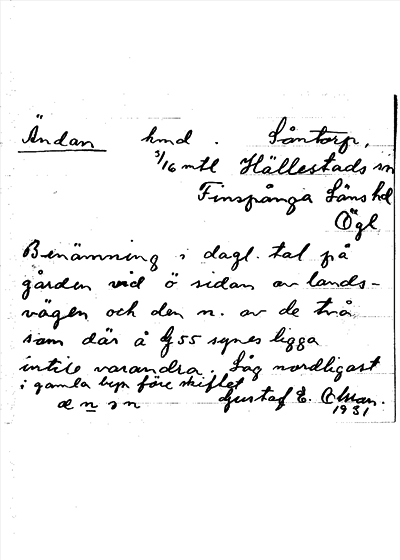 Ändan hmd. Såntorp,
3/16 mtl Hällestads sn
Finspånga Läns hd
Ögl
Benämning i dagl. tal på
gården vid ö sidan av lands-
vägen och den n. av de två
som där å G 55 synes ligga
intill varandra. Låg nordligast
i gamla byn före skiftet
Gustaf E. Olsson.
ænən 1931